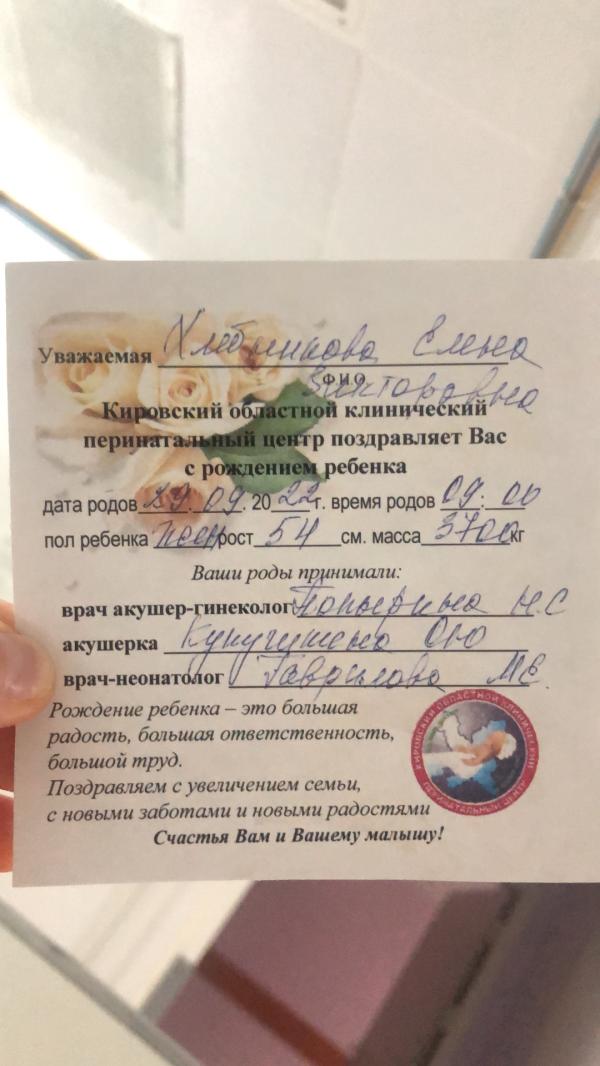 Уважаемая Хлебникова Елена
ФИО Викторовна
Кировский областной клинический
перинатальный центр поздравляет Вас
с рождением ребенка
дата родов 29. 09. 2022 г. время родов 09:00
пол ребенка жен рост 54 см. масса 3700 кг
Ваши роды принимали:
врач акушер-гинеколог Н.С
акушерка
врач-неонатолог Гаврилова
Рождение ребенка – это большая
радость, большая ответственность,
большой труд.
Поздравляем с увеличением семьи,
с новыми заботами и новыми радостями
Счастья Вам и Вашему малышу!
КИРОВСКИЙ ОБЛАСТНОЙ КЛИНИЧЕСКИЙ
ПЕРИНАТАЛЬНЫЙ ЦЕНТР